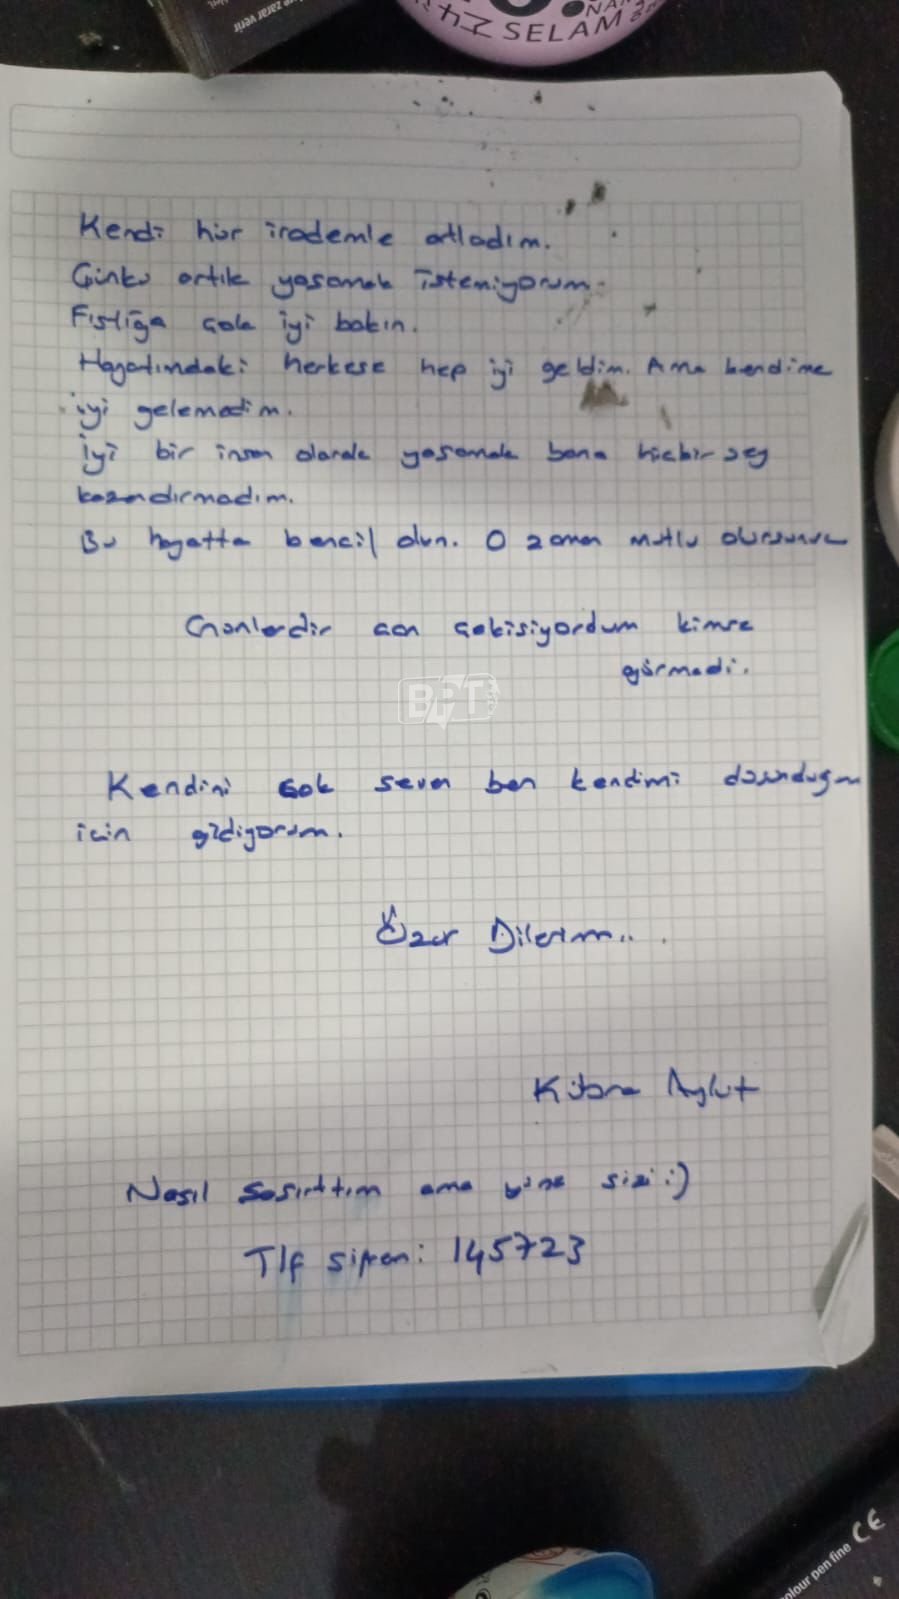 zarar verir
SELAM
Kendi hür irademle atladım.
Çünkü artık yaşamak istemiyorum.
Fıstığa çok iyi bakın.
Hayatımdaki herkese hep iyi geldim. Ama kendime
iyi gelemedim.
İyi bir insan olarak yaşamak bana hiçbir şey
kazandırmadım.
Bu hayatta bencil olun. O zaman mutlu olursunuz
Günlerdir can çekişiyordum kimse
görmedi.
BPT
Kendini çok seven ben kendimi düşündüğüm
için gidiyorum.
Özür Dilerim...
Kübra Aykut
Nasıl şaşırttım ama yine sizi :)
Tlf şifrem: 145723
colour pen fine CE